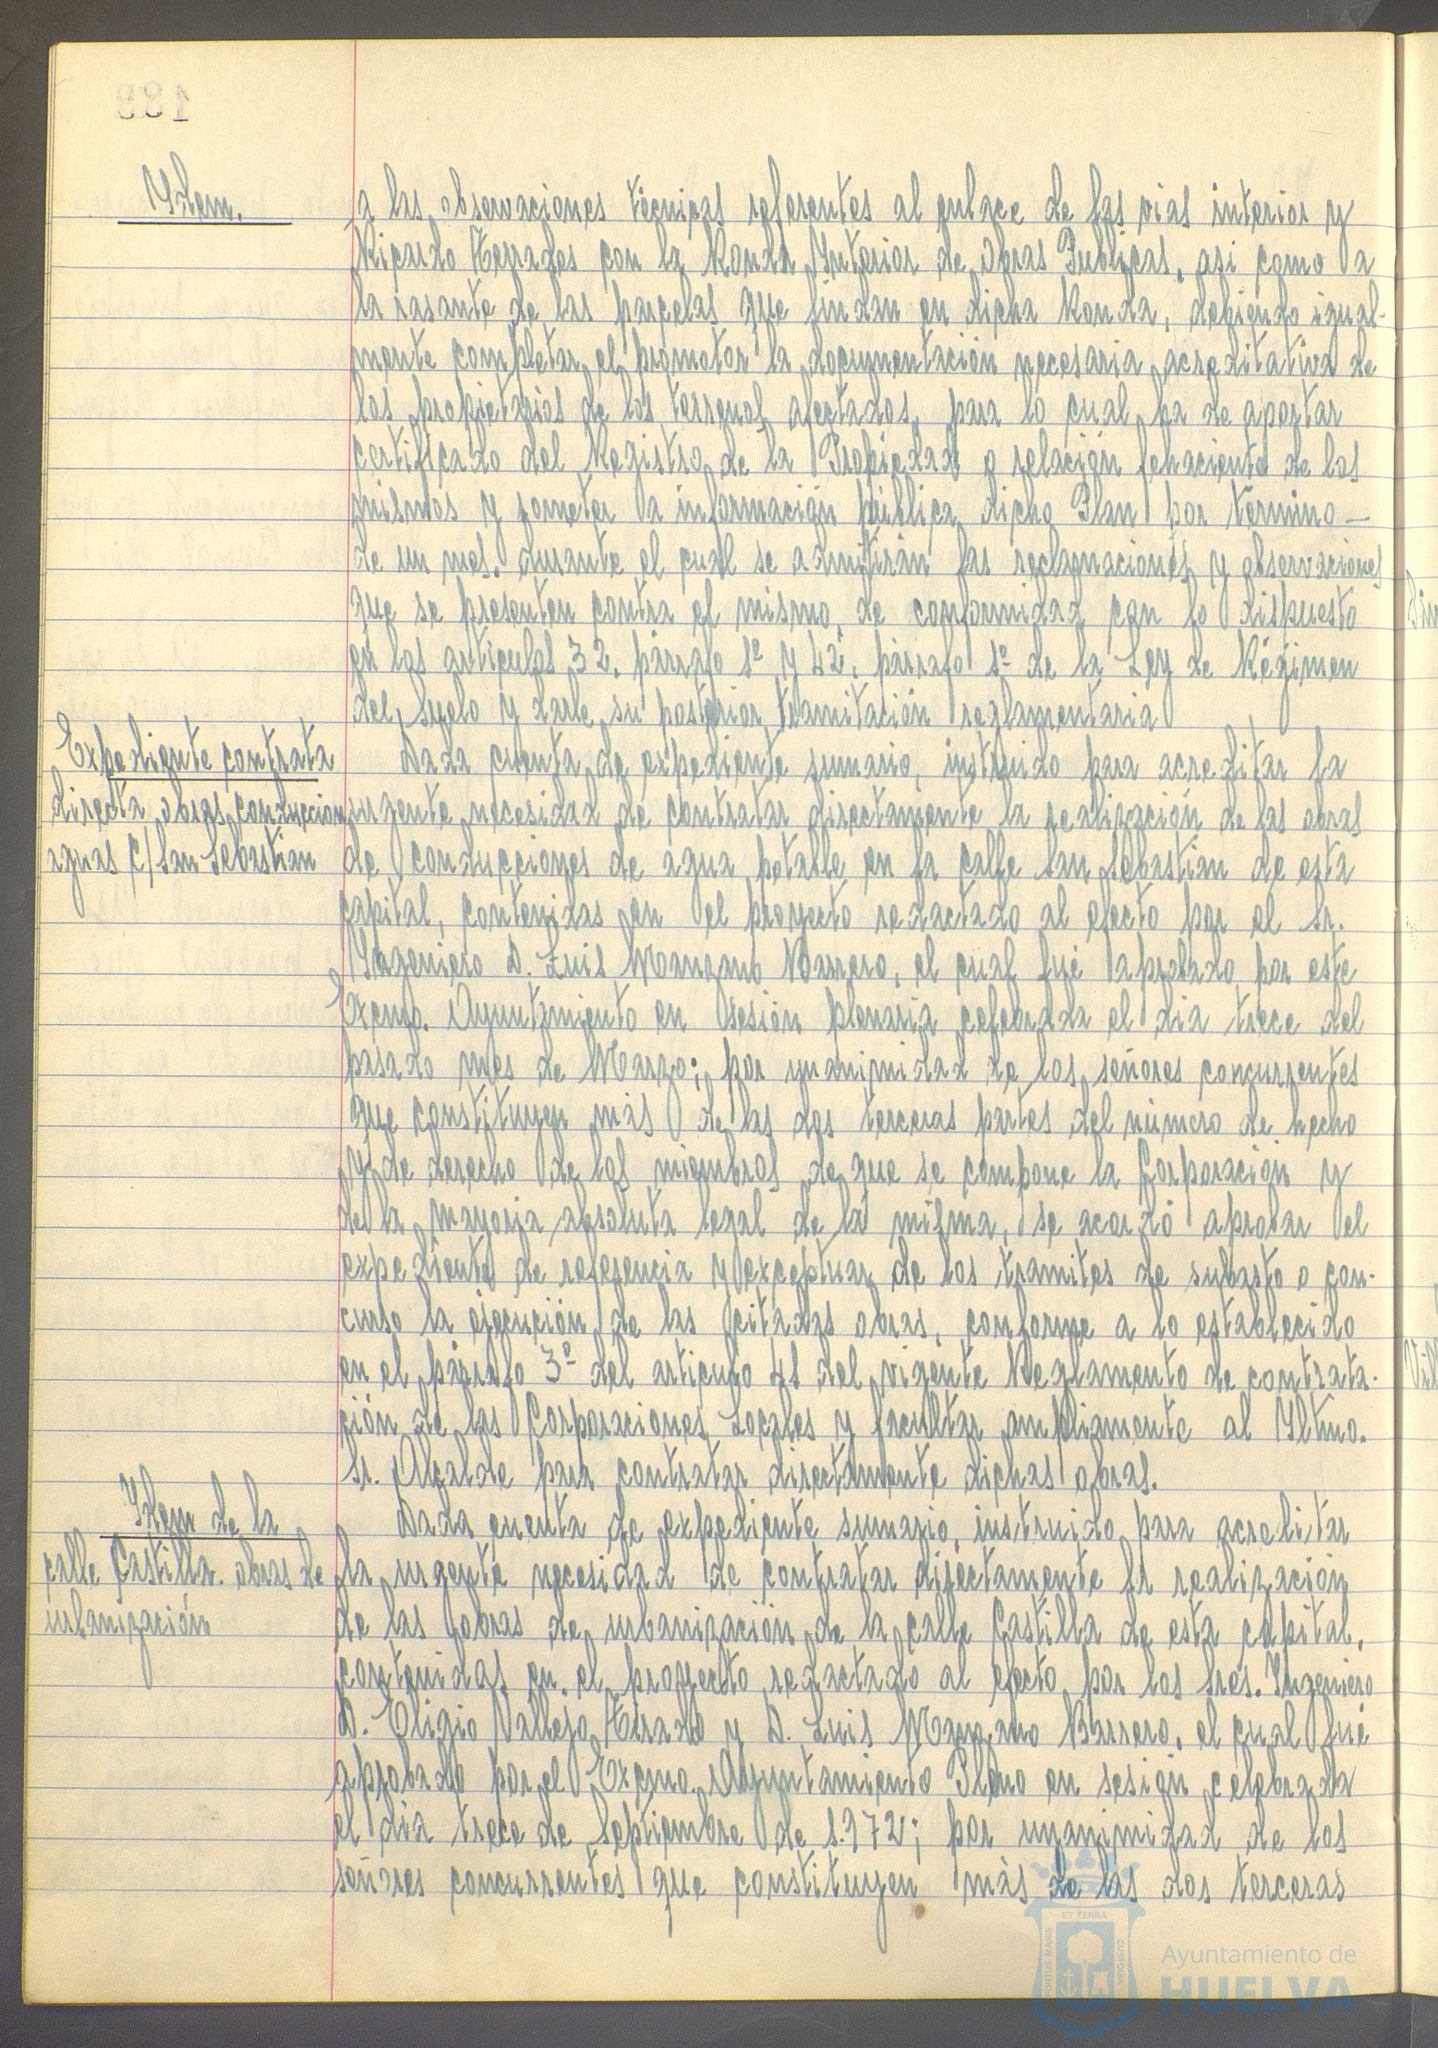 Ydem.
a las observaciones técnicas referentes al enlace de las vias interior y
Ricardo Terrades con la Ronda Ynterior de Obras Publicas, asi como a
la rasante de las parcelas que lindan en dicha Ronda, debiendo igual-
mente completar el promotor la documentación necesaria acreditativa de
los propietarios de los terrenos afectados, para lo cual ha de aportar
certificado del Registro de la Propiedad o relación fehaciente de los
mismos y someter a información pública dicho Plan por término—
de un mes, durante el cual se admitirán las reclamaciones y observaciones
que se presenten contra el mismo, de conformidad con lo dispuesto
en los articulos 32, párrafo 1º y 42, párrafo 1º de la Ley de Régimen
del Suelo y darle su posterior tramitación reglamentaria
Expediente contrata
directa obras conduccion
aguas C/ San Sebastian
Dada cuenta de expediente sumario, instruido para acreditar la
urgente necesidad de contratar directamente la realización de las obras
de conducciones de agua potable en la calle San Sebastián de esta
capital, contenidas en el proyecto redactado al efecto por el Sr.
Yngeniero D. Luis Manzano Barrero, el cual fué aprobado por este
Excmo. Ayuntamiento en sesión plenaria celebrada el dia trece del
pasado mes de Marzo; por unanimidad de los señores concurrentes
que constituyen más de las dos terceras partes del número de hecho
y de derecho de los miembros de que se compone la Corporación y
de la mayoria absoluta legal de la misma, se acordó aprobar el
expediente de referencia y exceptuar de los tramites de subasta o con-
curso la ejecución de las citadas obras, conforme a lo establecido
en el párrafo 3º del articulo 41 del vigente Reglamento de contrata-
ción de las Corporaciones Locales y facultar ampliamente al Yltmo.
Sr. Alcalde para contratar directamente dichas obras.
Ydem de la
calle Castilla. obras de
urbanización
Dada cuenta de expediente sumario, instruido para acreditar
la urgente necesidad de contratar directamente la realización
de las obras de urbanización de la calle Castilla de esta capital,
contenidas en el proyecto redactado al efecto por los Sres. Yngeniero
D. Eligio Vallejo Tirado y D. Luis Manzano Barrero, el cual fué
aprobado por el Excmo. Ayuntamiento Pleno en sesión celebrada
el dia trece de Septiembre de 1.972; por unanimidad de los
señores concurrentes que constituyen más de las dos terceras
Ayuntamiento de
HUELVA